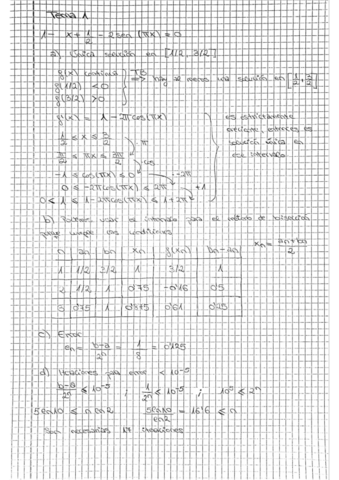 Tema 1
1- x + 1/2 - 2sen(πx) = 0
a) Única solución en [1/2, 3/2]
g(x) continua
g(1/2) < 0
g(3/2) > 0
TB ⇒ hay al menos una solución en [1/2, 3/2]
g'(x) = 1 - 2π cos(πx)
1/2 ≤ x ≤ 3/2
·π
π/2 ≤ πx ≤ 3π/2
cos
-1 ≤ cos(πx) ≤ 0
·-2π
0 ≤ -2πcos(πx) ≤ 2π
+1
0 < 1 ≤ 1-2πcos(πx) ≤ 1+2π
es estrictamente
creciente, entonces es
solución única en
ese intervalo
b) Podemos usar el intervalo para el método de bisección
cumple las condiciones
xn = an+bn / 2
n an bn xn g(xn) bn-an
1 1/2 3/2 1 3/2 1
2 1/2 1 0'75 -0'16 0'5
3 0'75 1 0'875 0'61 0'25
c) Error
en = b-a / 2^n = 1/8 = 0'125
d) Iteraciones para error < 10^-5
b-a / 2^n ≤ 10^-5 ; 1/2^n ≤ 10^-5 ; 10^5 ≤ 2^n
5ln10 ≤ n ln2 5ln10 / ln2 = 16'6 ≤ n
Son necesarias 17 iteraciones